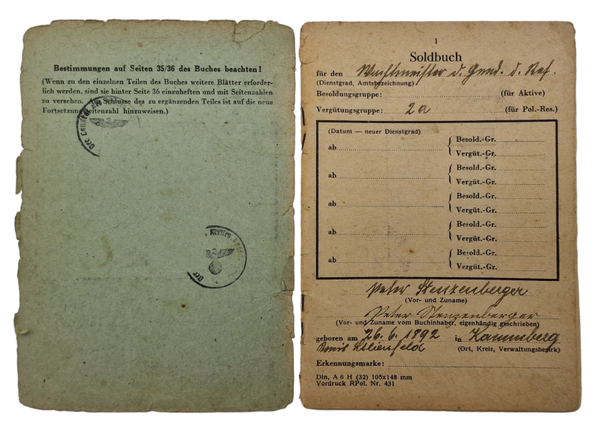 Bestimmungen auf Seiten 35/36 des Buches beachten!
(Wenn zu den einzelnen Teilen des Buches weitere Blätter erforder-
lich werden, sind sie hinter Seite 36 einzuheften und mit Seitenzahlen
zu versehen. Am Schlusse des zu ergänzenden Teiles ist auf die neue
Fortsetzungsseitenzahl hinzuweisen.)
Der
Der
1
Soldbuch
für den Wachtmeister d. Gend. d. Res.
(Dienstgrad, Amtsbezeichnung)
Besoldungsgruppe: (für Aktive)
Vergütungsgruppe: 2a (für Pol.-Res.)
(Datum — neuer Dienstgrad)
Besold.-Gr.
ab
Vergüt.-Gr.
Besold.-Gr.
ab
Vergüt.-Gr.
Besold.-Gr.
ab
Vergüt.-Gr.
Besold.-Gr.
ab
Vergüt.-Gr.
Besold.-Gr.
ab
Vergüt.-Gr.
Peter Stenzenberger
(Vor- und Zuname)
Peter Stenzenberger
(Vor- und Zuname vom Buchinhaber, eigenhändig geschrieben)
geboren am 26.6.1892 in
Kreis Lilienfeld (Ort, Kreis, Verwaltungsbezirk)
Erkennungsmarke:
Din. A 6 H (32) 105x148 mm
Vordruck RPol. Nr. 431